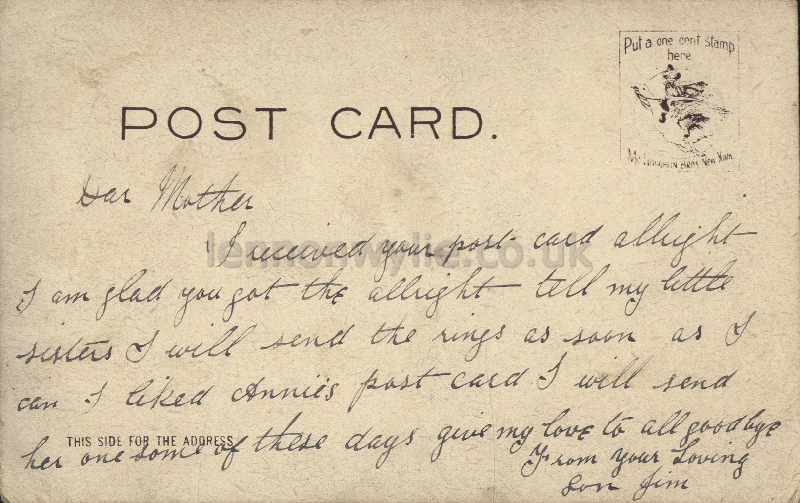 Put a one cent stamp
here
McLoughlin Bros New York
POST CARD.
Dear Mother
I received your post card allright
lennonwylie.co.uk
I am glad you got the allright tell my little
sisters I will send the rings as soon as I
can I liked Annie's post card I will send
THIS SIDE FOR THE ADDRESS
her one some of these days give my love to all goodbye
From your Loving
Son Jim